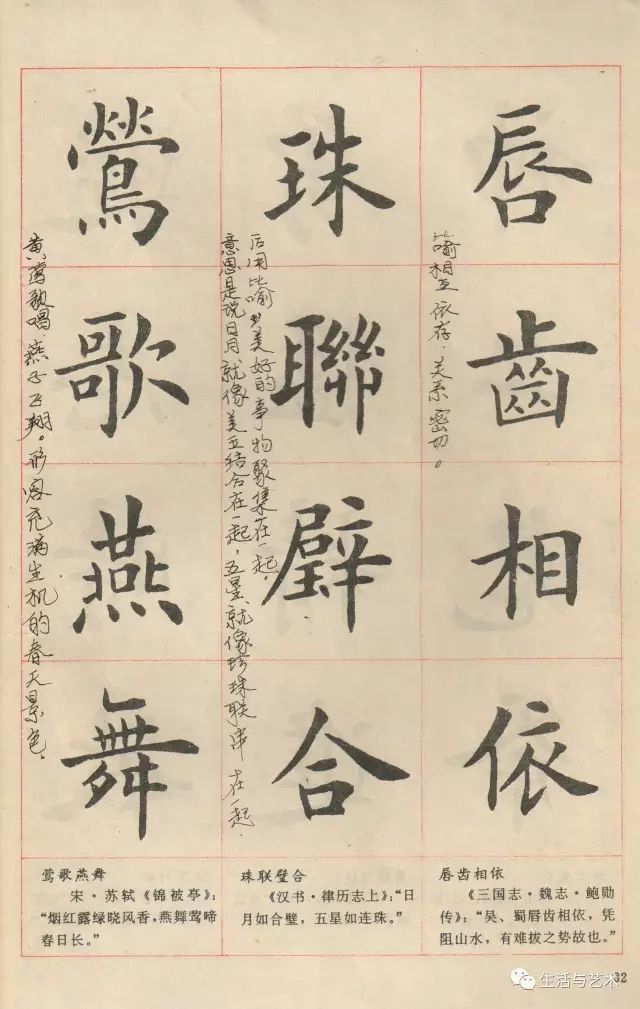 唇齒相依
喻相互依存.关系密切。
珠聯璧合
后用比喻美好的事物聚集在一起.
意思是说日月就像美玉结合在一起,五星就像珍珠联串在一起.
鶯歌燕舞
黄莺歌唱.燕子飞翔。形容充满生机的春天景色.
唇齿相依
《三国志·魏志·鲍勋
传》:“吴、蜀唇齿相依,凭
阻山水,有难拔之势故也。”
珠联璧合
《汉书·律历志上》:“日
月如合璧,五星如连珠。”
莺歌燕舞
宋·苏轼《锦被亭》:
“烟红露绿晓风香,燕舞莺啼
春日长。”
32
生活与艺术